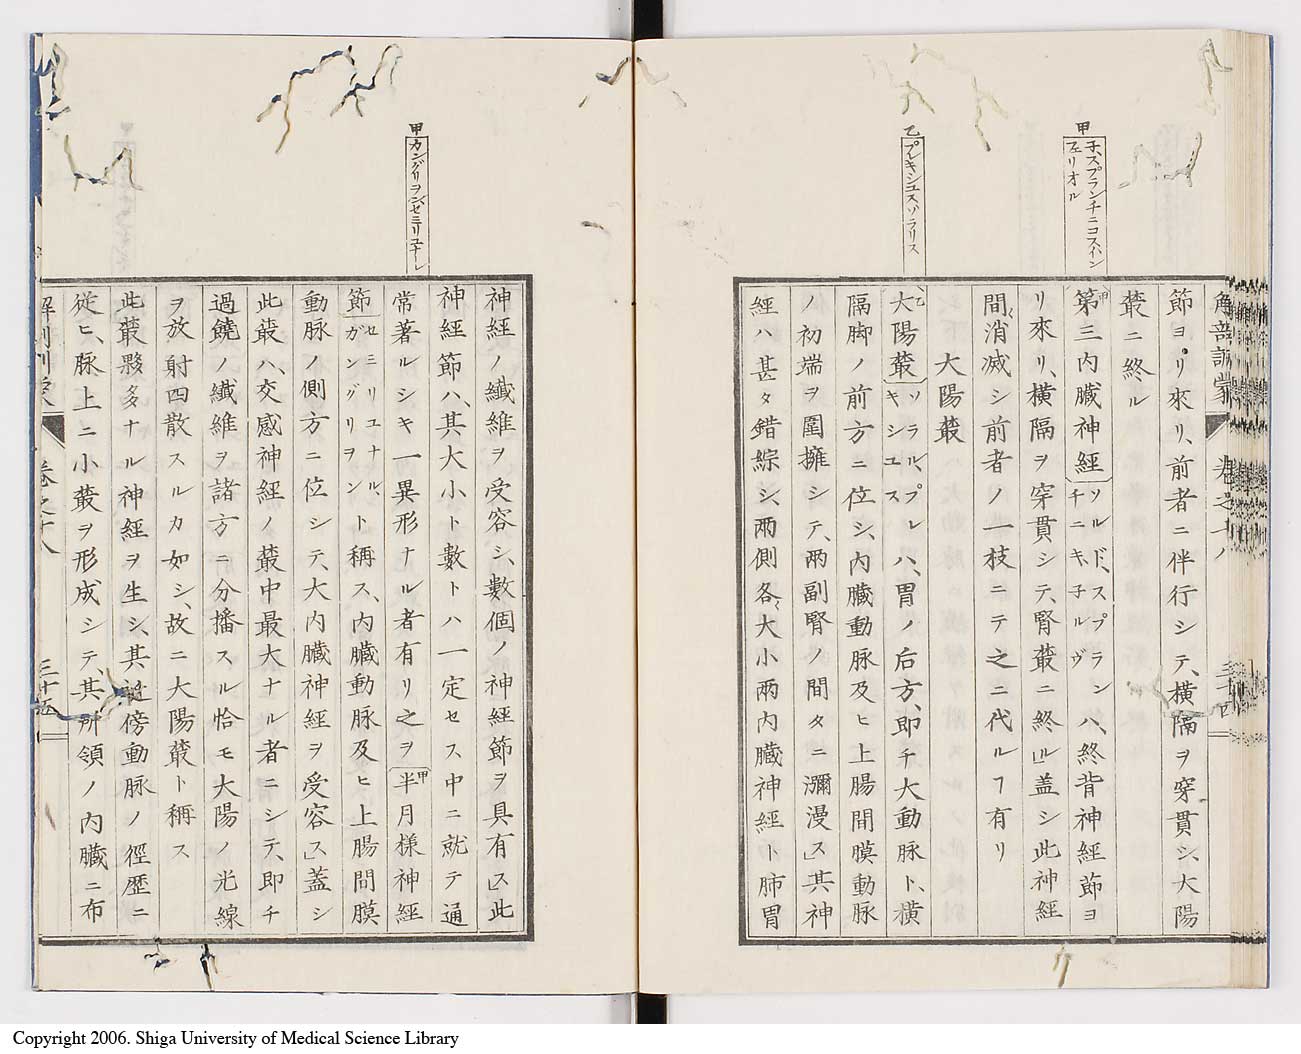 甲
子、スプランチニコスハン
フェリオル
乙
プレキシュスソラリス
解剖訓蒙 卷之十八 三十四
節ヨリ來リ、前者ニ伴行シテ、橫隔ヲ穿貫シ、大陽
叢ニ終ル
甲第三內臟神經〔ソルド、スプラン
チニキ、チルヴ〕ハ、終背神經節ヨ
リ來リ、橫隔ヲ穿貫シテ、腎叢ニ終ル」盖シ此神經
間〻消滅シ前者ノ一枝ニテ之ニ代ルヿ有リ
大陽叢
乙大陽叢〔ソラル、プレ
キシユス〕ハ、胃ノ后方、即チ大動脉ト、橫
隔脚ノ前方ニ位シ、內臟動脉及ヒ上腸間膜動脉
ノ初端ヲ圍擁シテ、兩副腎ノ間タニ瀰漫ス」其神
經ハ甚タ錯綜シ、兩側各〻大小兩內臟神經ト肺胃
甲
カングリヲン、セミリユナーレ
神經ノ纖維ヲ受容シ、數個ノ神經節ヲ具有ス」此
神經節ハ、其大小ト數トハ一定セス中ニ就テ通
常著ルシキ一異形ナル者有リ之ヲ甲半月樣神經
節〔セミリユナル
ガングリヲン〕ト稱ス、內臟動脉及ヒ上腸間膜
動脉ノ側方ニ位シテ、大內臟神經ヲ受容ス」蓋シ
此叢ハ、交感神經ノ叢中最大ナル者ニシテ、即チ
過饒ノ纖維ヲ諸方ニ分播スル恰モ大陽ノ光線
ヲ放射四散スルカ如シ、故ニ大陽叢ト稱ス
此叢夥多ナル神經ヲ生シ、其近傍動脉ノ徑歷ニ
從ヒ、脉上ニ小叢ヲ形成シテ、其所領ノ內臟ニ布
解剖訓蒙 卷之十八 三十五
Copyright 2006. Shiga University of Medical Science Library